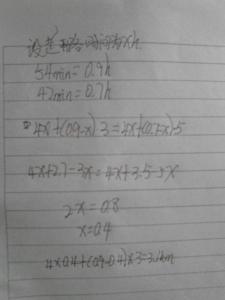 设走平路时间为xh.
54min=0.9h
42min=0.7h
4x+(0.9-x)3=4x+(0.7-x)5
4x+2.7-3x=4x+3.5-5x
2x=0.8
x=0.4
4×0.4+(0.9-0.4)×3=3.1km